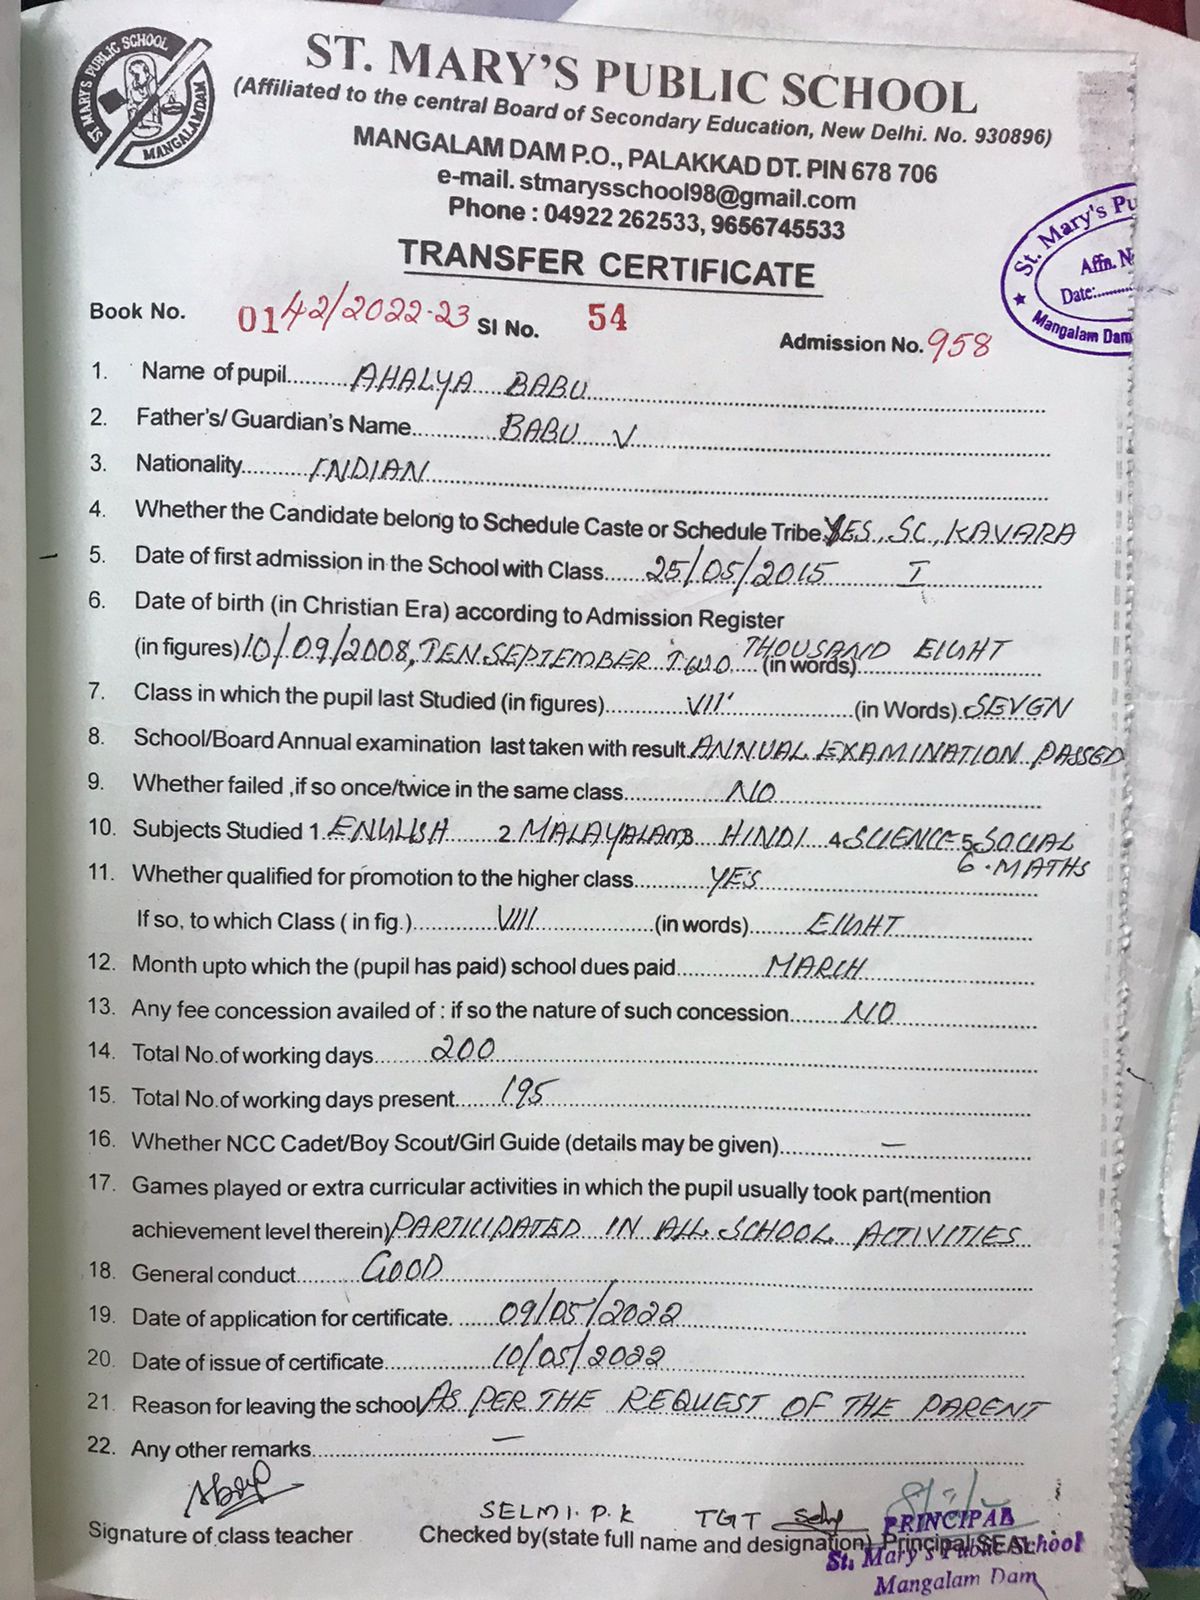 ST. MARY'S PUBLIC SCHOOL
MANGALAM DAM
ST. MARY'S PUBLIC SCHOOL
(Affiliated to the central Board of Secondary Education, New Delhi. No. 930896)
MANGALAM DAM P.O., PALAKKAD DT. PIN 678 706
e-mail. stmarysschool98@gmail.com
Phone : 04922 262533, 9656745533
St. Mary's Pu
Affn. N
Date:
Mangalam Dam
TRANSFER CERTIFICATE
Book No. 0142/2022-23 SI No. 54 Admission No. 958
1. Name of pupil AHALYA BABU
2. Father's/ Guardian's Name BABU V
3. Nationality INDIAN
4. Whether the Candidate belong to Schedule Caste or Schedule Tribe YES, SC, KAVARA
5. Date of first admission in the School with Class 25/05/2015 I
6. Date of birth (in Christian Era) according to Admission Register
(in figures) 10/09/2008, TEN SEPTEMBER TWO THOUSAND EIGHT (in words)
7. Class in which the pupil last Studied (in figures) VII (in Words) SEVEN
8. School/Board Annual examination last taken with result ANNUAL EXAMINATION PASSED
9. Whether failed ,if so once/twice in the same class NO
10. Subjects Studied 1. ENGLISH 2. MALAYALAM 3. HINDI 4. SCIENCE 5. SOCIAL
6. MATHS
11. Whether qualified for promotion to the higher class YES
If so, to which Class ( in fig.) VIII (in words) EIGHT
12. Month upto which the (pupil has paid) school dues paid MARCH
13. Any fee concession availed of : if so the nature of such concession NO
14. Total No.of working days 200
15. Total No.of working days present 195
16. Whether NCC Cadet/Boy Scout/Girl Guide (details may be given) —
17. Games played or extra curricular activities in which the pupil usually took part(mention
achievement level therein) PARTICIPATED IN ALL SCHOOL ACTIVITIES
18. General conduct GOOD
19. Date of application for certificate. 09/05/2022
20. Date of issue of certificate 10/05/2022
21. Reason for leaving the school AS PER THE REQUEST OF THE PARENT
22. Any other remarks —
SELMI. P. K TGT
PRINCIPAL
Signature of class teacher Checked by(state full name and designation) Principal SEAL
St. Mary's Public School
Mangalam Dam